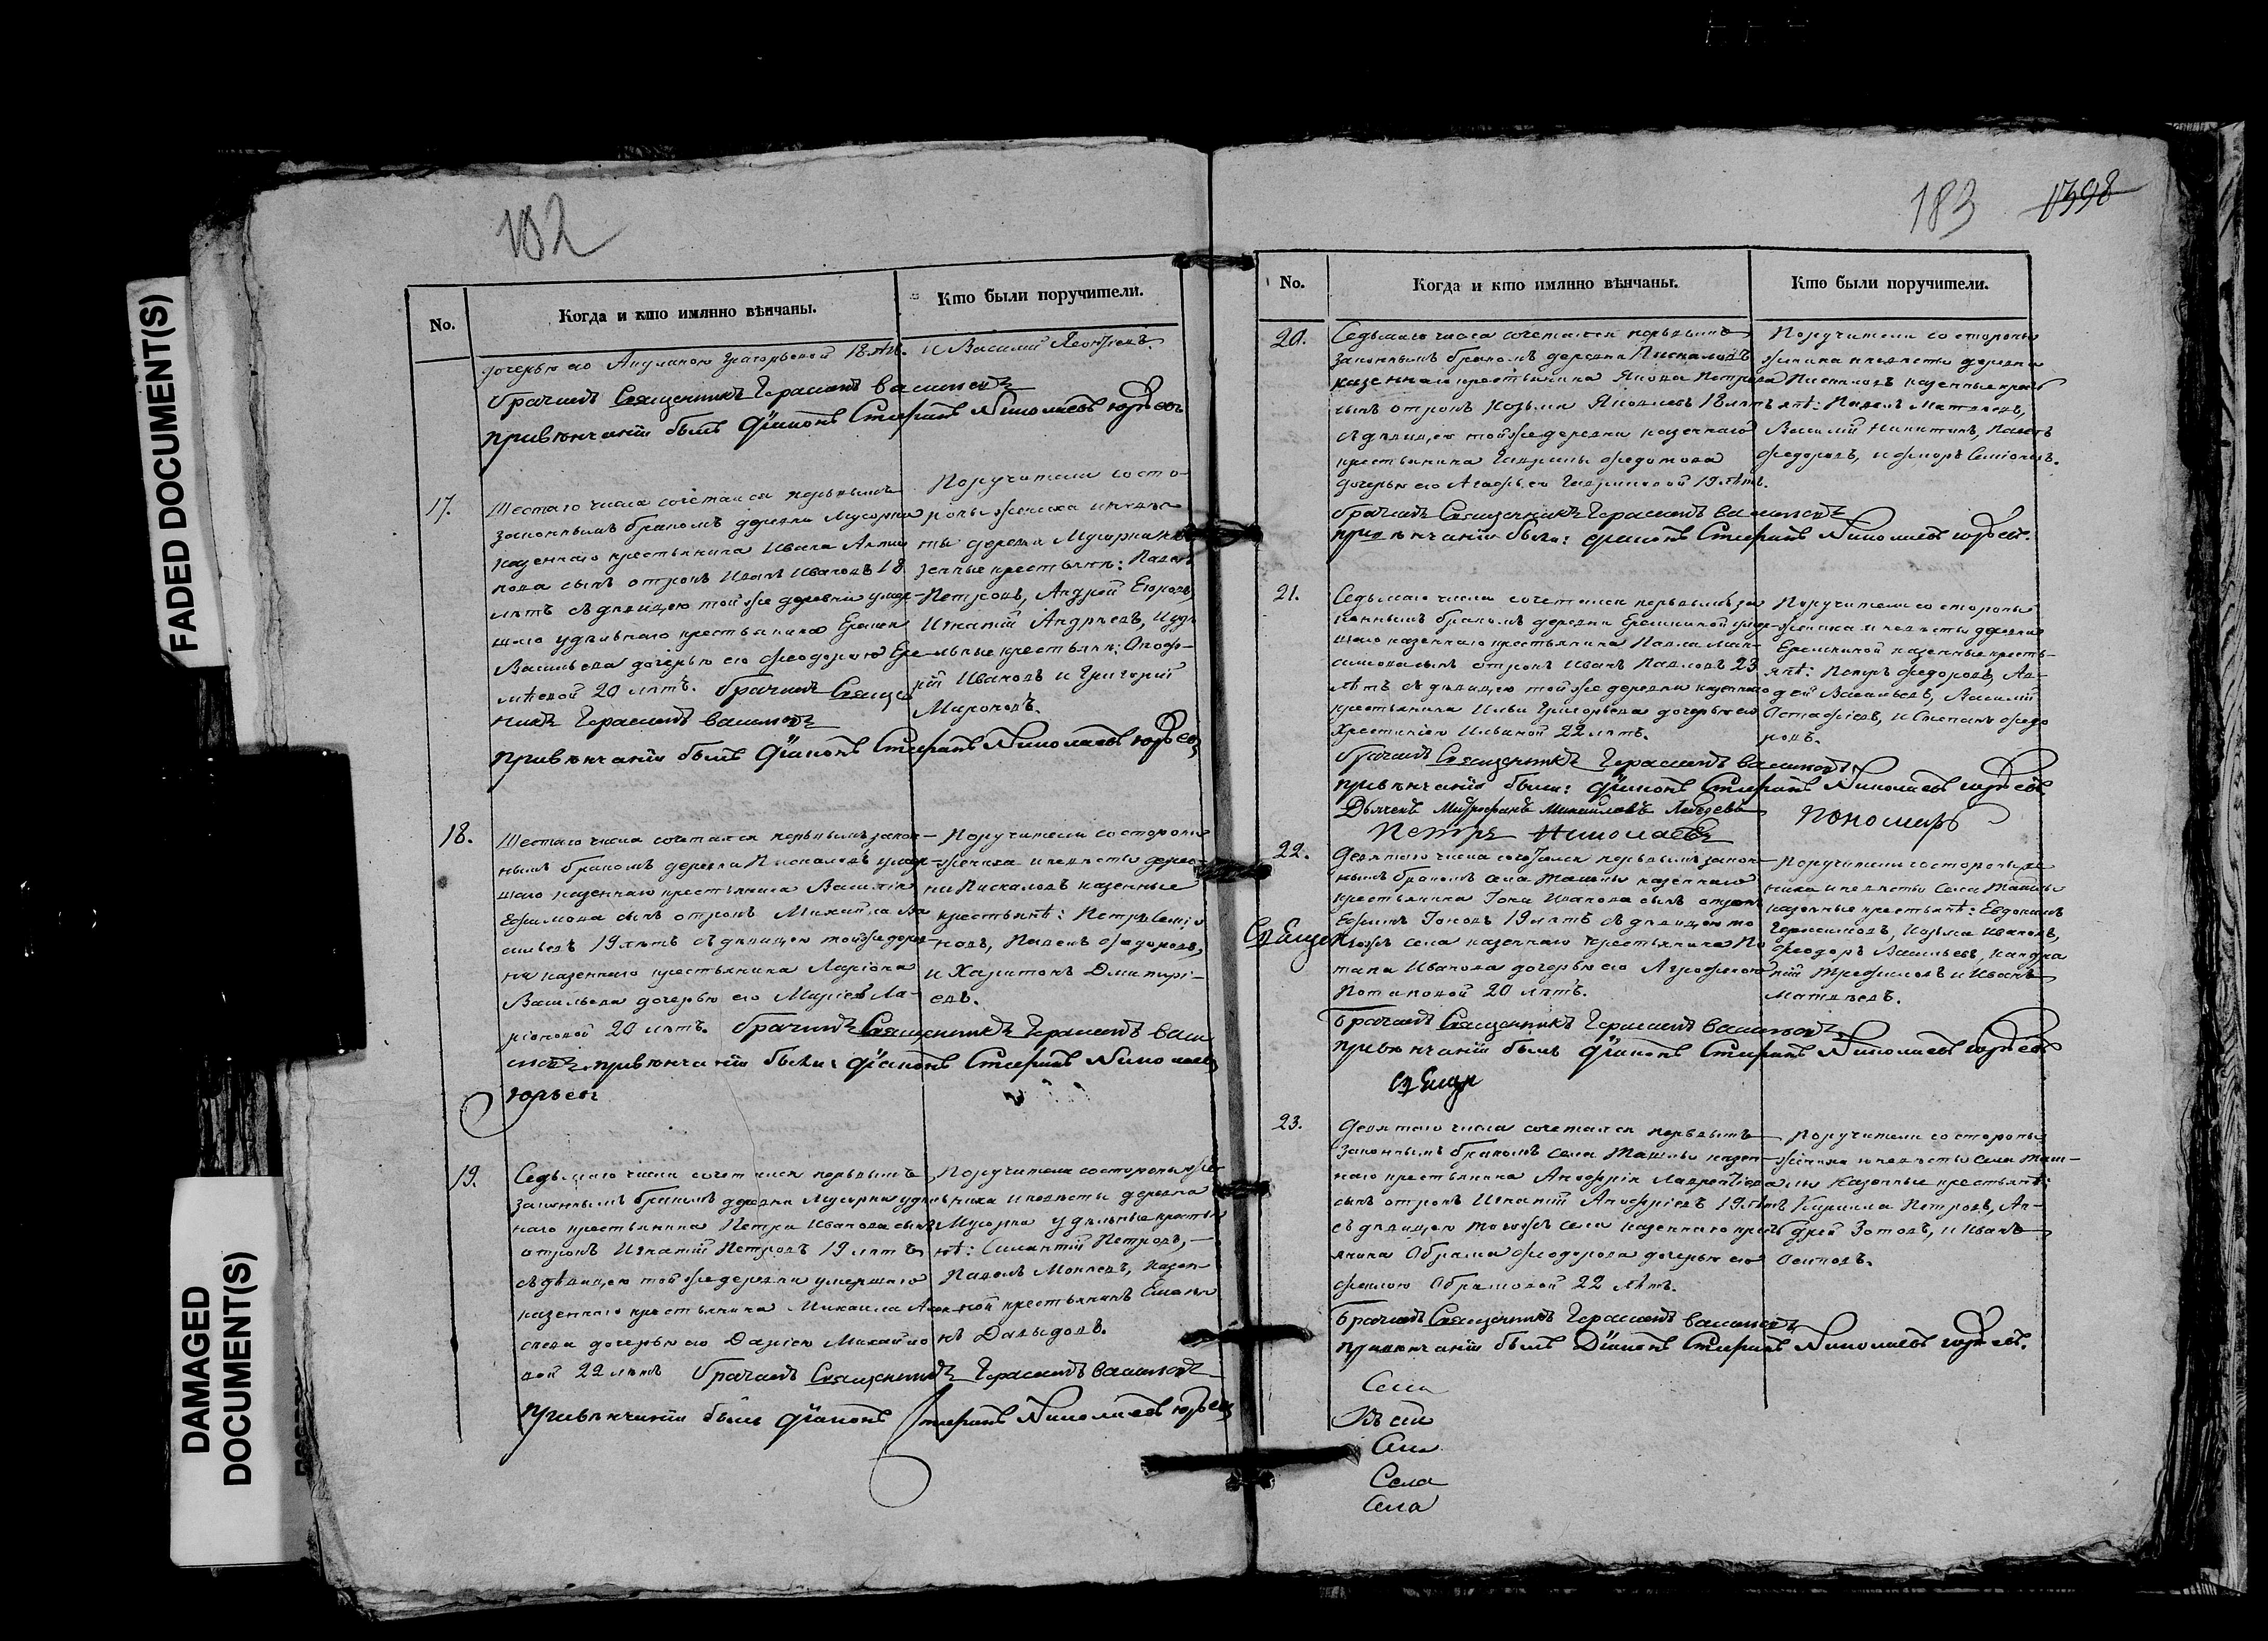 FADED DOCUMENT(S)
DAMAGED DOCUMENT(S)
182
No.
Когда и кто имянно вѣнчаны.
Кто были поручители.
дочерью его Акулиною Григорьевой 18 лѣтъ.
и Василий Леонтіевъ.
брачилъ Священникъ Герасимъ Васильевъ
привѣнчаніи былъ Діаконъ Стефанъ Николаевъ Юрьевъ
17.
Шестаго числа сочетался первымъ
законнымъ бракомъ деревни Мусорки
казеннаго крестьянина Ивана
сынъ отрокъ Иванъ Ивановъ 18
лѣтъ съ дѣвицею той же деревни умер-
шаго удѣльнаго крестьянина Еремея
Васильева дочерью его Феодорою Ере-
мѣевой 20 лѣтъ. брачилъ Священ
никъ Герасимъ Васильевъ
привѣнчаніи былъ Діаконъ Стефанъ Николаевъ Юрьевъ
Поручители со сто-
роны жениха и невѣс
ты деревни Мусорки ка
зенные крестьяне: Павелъ
Петровъ, Андрей Егоровъ,
Игнатій Андреевъ, и удѣ
льные крестьяне: Оноф-
рій Ивановъ и Григорій
Мироновъ.
18.
Шестаго числа сочетался первымъ закон-
нымъ бракомъ деревни Пискаловъ умер-
шаго казеннаго крестьянина Василія
Ефимова сынъ отрокъ Михайла Ва
сильевъ 19 лѣтъ съ дѣвицею той же дерев-
ни казеннаго крестьянина Ларіона
Васильева дочерью его Маріею Ла-
ріоновой 20 лѣтъ. брачилъ Священникъ Герасимъ Васи
льевъ. привѣнчаніи были: Діаконъ Стефанъ Николаевъ
Юрьевъ
Поручители со стороны
жениха и невѣсты дерев
ни Пискаловъ казенные
крестьянѣ: Петръ Семіо
новъ, Павелъ Федоровъ,
и Харитонъ Дмитрі-
евъ.
19.
Седьмаго числа сочетался первымъ
законнымъ бракомъ деревни Мусорки удѣль
наго крестьянина Петра Иванова сынъ
отрокъ Игнатій Петровъ 19 лѣтъ
съ дѣвицею той же деревни умершаго
казеннаго крестьянина Михаила
дочерью его Даріею Михайло
вой 22 лѣтъ брачилъ Священникъ Герасимъ Васильевъ
привѣнчаніи былъ Діаконъ Стефанъ Николаевъ Юрьевъ
Поручители со стороны же-
ниха и невѣсты деревни
Мусорки удѣльные кресть
янѣ: Силантій Петровъ,
Павелъ Мокѣевъ, казен
ной крестьянинъ Емелья
нъ Давыдовъ.
183 1398
No.
Когда и кто имянно вѣнчаны.
Кто были поручители.
20.
Седьмаго числа сочетался первымъ
законнымъ бракомъ деревни Пискаловъ
казеннаго крестьянина Якова Петрова
сынъ отрокъ Козьма Яковлевъ 18 лѣтъ
съ дѣвицею той же деревни казеннаго
крестьянина Гаврилы Федотова
дочерью его Агафьею Гавриловой 19 лѣтъ.
брачилъ Священникъ Герасимъ Васильевъ
привѣнчаніи были: Діаконъ Стефанъ Николаевъ Юрьевъ.
Поручители со стороны
жениха и невѣсты деревни
Пискаловъ казенные кресть
янѣ: Павелъ Матвѣевъ,
Василій Никитинъ, Павелъ
Федоровъ, и Флоръ Семіоновъ.
21.
Седьмаго числа сочетался первымъ за
коннымъ бракомъ деревни Еремкиной умер-
шаго казеннаго крестьянина Павла Мак-
симова сынъ отрокъ Иванъ Павловъ 23
лѣтъ съ дѣвицею той же деревни казеннаго
крестьянина Ильи Григорьева дочерью его
Христиніею Ильиной 22 лѣтъ.
брачилъ Священникъ Герасимъ Васильевъ
привѣнчаніи были: Діаконъ Стефанъ Николаевъ Юрьевъ
Дьячекъ Митрофанъ Михайловъ Лебедевъ
Петръ Николаевъ Пономарь
Поручители со стороны
жениха и невѣсты деревни
Еремкиной казенные кресть-
янѣ: Петръ Федоровъ, Ав-
дей Васильевъ, Василій
Остафіевъ, и Степанъ Федо
ровъ.
22.
Девятаго числа сочетался первымъ закон-
нымъ бракомъ села Ташлы казеннаго
крестьянина Іоны Иванова сынъ отрокъ
Ефимъ Іоновъ 19 лѣтъ съ дѣвицею то
гожъ села казеннаго крестьянина По
тапа Иванова дочерью его Агрофеною
Потаповой 20 лѣтъ.
брачилъ Священникъ Герасимъ Васильевъ
привѣнчаніи былъ Діаконъ Стефанъ Николаевъ Юрьевъ
Поручители со стороны же
ниха и невѣсты села Ташлы
казенные крестьянѣ: Евдокимъ
Герасимовъ, Козьма Ивановъ,
Феодоръ Васильевъ, Кондра
тій Трофимовъ и Иванъ
Матвѣевъ.
23.
Девятаго числа сочетался первымъ
законнымъ бракомъ села Ташлы казен-
наго крестьянина Анофрія Лаврентіева
сынъ отрокъ Игнатій Анофріевъ 19 лѣтъ
съ дѣвицею тогожъ села казеннаго кресть
янина Абрама Феодорова дочерью его
Феклою Абрамовой 22 лѣтъ.
брачилъ Священникъ Герасимъ Васильевъ
привѣнчаніи былъ Діаконъ Стефанъ Николаевъ Юрьевъ.
Поручители со стороны
жениха и невѣсты села Таш-
лы казенные крестьянѣ:
Кирилла Петровъ, Ан-
дрей Зотовъ, и Иванъ
Осиповъ.
Села
Села
Села